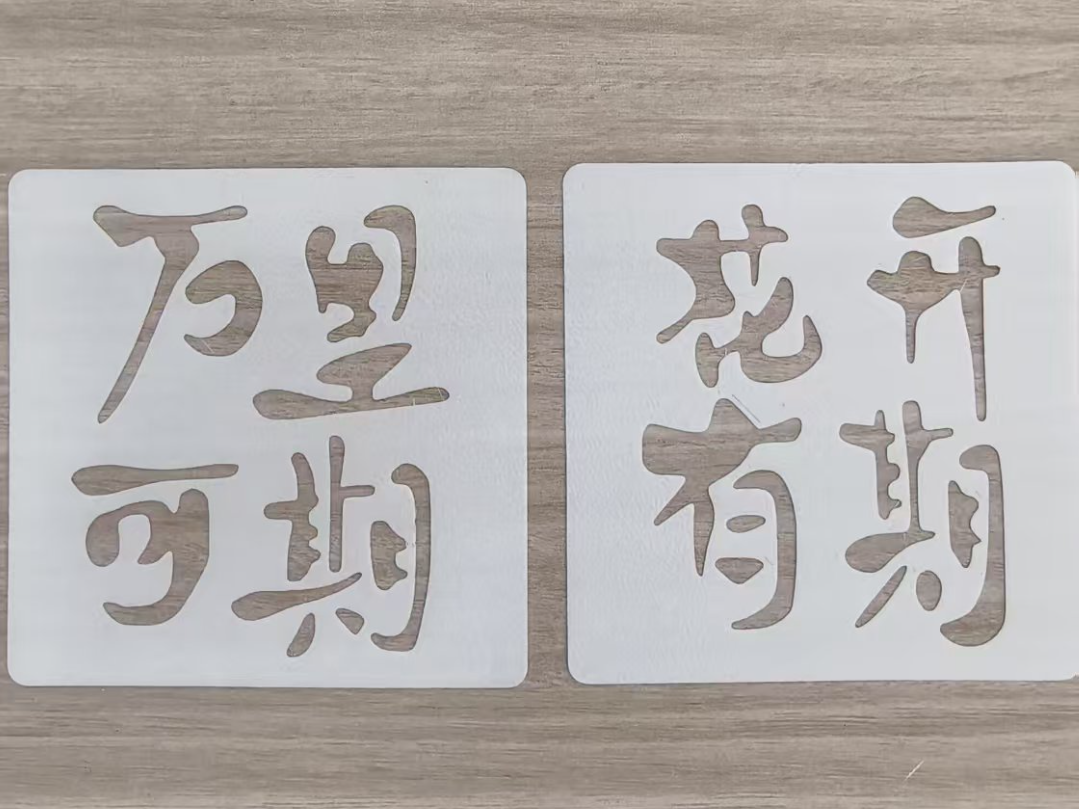 万里
可期
花开
有期